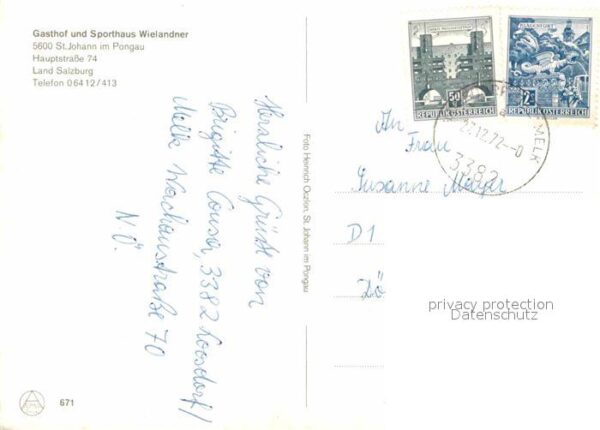 Gasthof und Sporthaus Wielandner
5600 St. Johann im Pongau
Hauptstraße 74
Land Salzburg
Telefon 06412/413
Herzliche Grüße von
Brigitte 3382 Loosdorf/
Melk Wachaustraße 70
N.Ö.
Foto Heinrich Oczlon, St. Johann im Pongau
50 g
REPUBLIK ÖSTERREICH
KLAGENFURT
REPUBLIK ÖSTERREICH
MELK
27.12.72-0
3382
An
Frau
Susanne Mayer
D1
privacy protection
Datenschutz
671